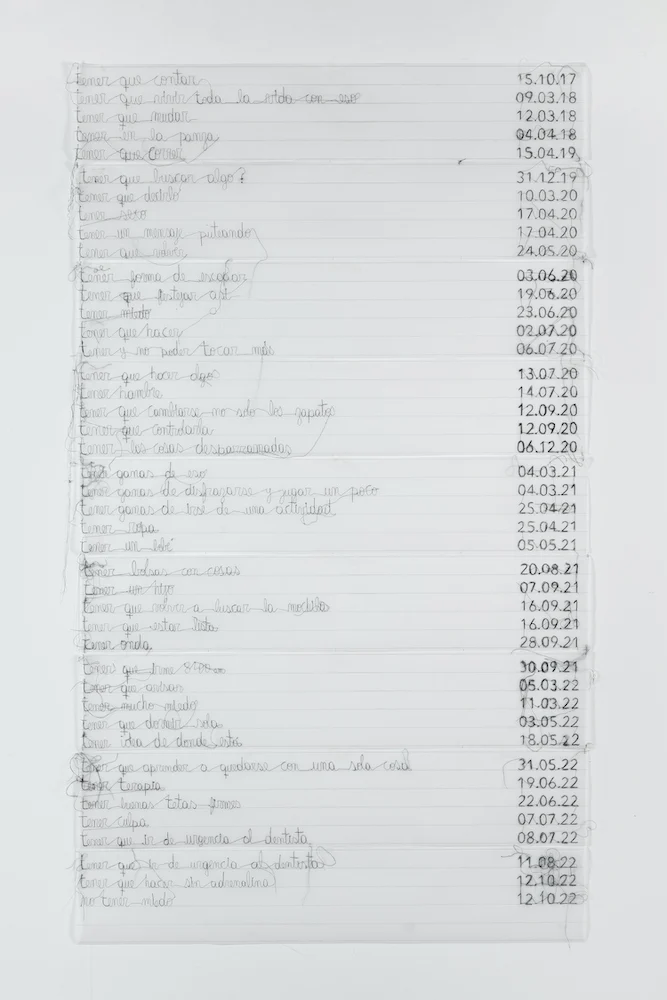 tener que contar 15.10.17
tener que vivir toda la vida con eso 09.03.18
tener que mudar 12.03.18
tener en la panza 04.04.18
tener que correr 15.04.19
tener que buscar algo? 31.12.19
tener que decirlo 10.03.20
tener sexo 17.04.20
tener un mensaje puteando 17.04.20
tener que volver 24.05.20
tener forma de escapar 03.06.20
tener que festejar así 19.06.20
tener miedo 23.06.20
tener que hacer 02.07.20
tener y no poder tocar más 06.07.20
tener que hacer algo 13.07.20
tener hambre 14.07.20
tener que cambiarse no solo los zapatos 12.09.20
tener que controlarla 12.09.20
tener las cosas desparramadas 06.12.20
tener ganas de eso 04.03.21
tener ganas de disfrazarse y jugar un poco 04.03.21
tener ganas de irse de una actividad 25.04.21
tener ropa 25.04.21
tener un bebé 05.05.21
tener bolsas con cosas 20.08.21
tener un hijo 07.09.21
tener que volver a buscar la mochila 16.09.21
tener que estar lista 16.09.21
tener onda 28.09.21
tener que irme 30.09.21
tener que avisar 05.03.22
tener mucho miedo 11.03.22
tener que dormir sola 03.05.22
tener idea de donde estoy 18.05.22
tener que aprender a quedarse con una sola cosa 31.05.22
tener terapia 19.06.22
tener buenas tetas firmes 22.06.22
tener culpa 07.07.22
tener que ir de urgencia al dentista 08.07.22
tener que ir de urgencia al dentista 11.08.22
tener que hacer sin adrenalina 12.10.22
no tener miedo 12.10.22